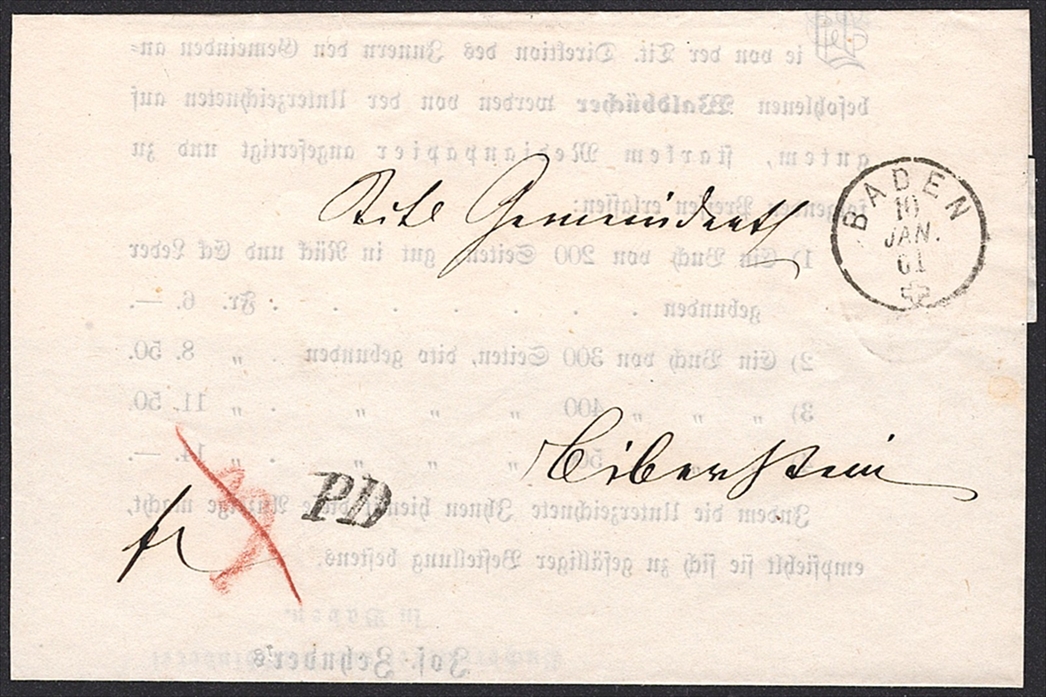 ie von der Tit. Direktion des Innern den Gemeinden an=
befohlenen Waldbücher werden von der Unterzeichneten auf
gutem, starkem Medianpapier angefertigt und zu
folgenden Preisen erlassen:
BADEN
10
JAN.
61
Titl Gemeindrath
1) Ein Buch von 200 Seiten, gut in Rück und Eck Leder
gebunden . . . . . . . Fr. 6. —.
2) Ein Buch von 300 Seiten, dito gebunden . „ 8. 50.
3) „ „ „ 400 „ „ „ . „ 11. 50.
„ „ . „ 14. —
Biberstein
PD
fr
Indem die Unterzeichnete Ihnen macht,
empfiehlt sie sich zu gefälliger Bestellung bestens.
in Baden.
Jos. Zehnder's